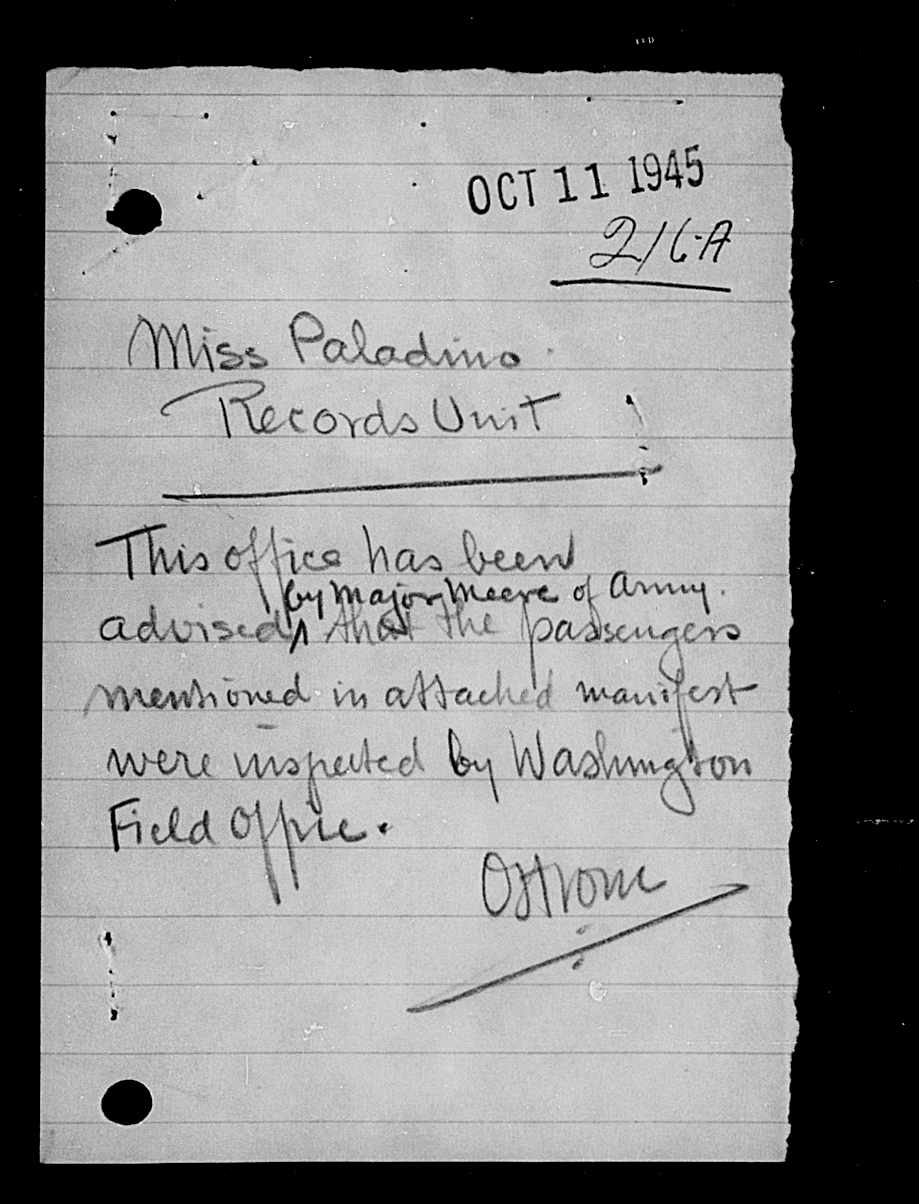 OCT 11 1945
216-A
Miss Paladino
Records Unit
This office has been
by Major Meere of Army.
advised that the passengers
mentioned in attached manifest
were inspected by Washington
Field Office.
Ostrom